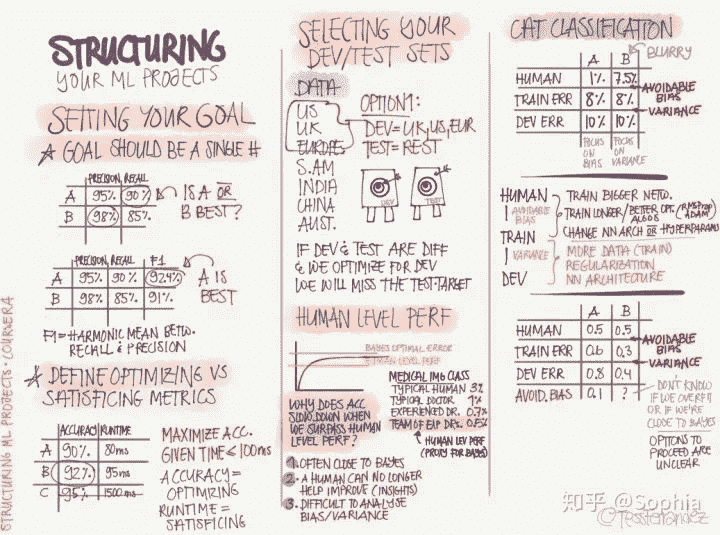 STRUCTURING
YOUR ML PROJECTS
SETTING YOUR GOAL
★ GOAL SHOULD BE A SINGLE #
PRECISION, RECALL
A 95% 90%
B 98% 85%
IS A OR
B BEST?
PRECISION, RECALL F1
A 95% 90% 92.4%
B 98% 85% 91%
A IS
BEST
F1 = HARMONIC MEAN BETW.
RECALL & PRECISION
★ DEFINE OPTIMIZING VS
SATISFICING METRICS
ACCURACY RUNTIME
A 90% 80ms
B 92% 95ms
C 95% 1500ms
MAXIMIZE ACC.
GIVEN TIME ≤ 100ms
ACCURACY =
OPTIMIZING
RUNTIME =
SATISFICING
STRUCTURING ML PROJECTS · COURSERA
SELECTING YOUR
DEV/TEST SETS
DATA
US
UK
EUROPE
S.AM
INDIA
CHINA
AUST.
OPTION1:
DEV = UK, US, EUR
TEST = REST
DEV
TEST
IF DEV & TEST ARE DIFF
& WE OPTIMIZE FOR DEV
WE WILL MISS THE TEST-TARGET
HUMAN LEVEL PERF
BAYES OPTIMAL ERROR
HUMAN LEVEL PERF
WHY DOES ACC
SLOW DOWN WHEN
WE SURPASS HUMAN
LEVEL PERF?
MEDICAL IMG CLASS
TYPICAL HUMAN 3%
TYPICAL DOCTOR 1%
EXPERIENCED DR. 0.7%
TEAM OF EXP DR.'S 0.5%
HUMAN LEV PERF
(PROXY FOR BAYES)
1. OFTEN CLOSE TO BAYES
2. A HUMAN CAN NO LONGER
HELP IMPROVE (INSIGHTS)
3. DIFFICULT TO ANALYSE
BIAS/VARIANCE
CAT CLASSIFICATION
A B
BLURRY
HUMAN 1% 7.5%
TRAIN ERR 8% 8%
DEV ERR 10% 10%
AVOIDABLE
BIAS
VARIANCE
FOCUS
ON
BIAS
FOCUS
ON
VARIANCE
HUMAN
AVOIDABLE
BIAS
TRAIN
VARIANCE
DEV
TRAIN BIGGER NETW.
TRAIN LONGER/BETTER OPT. ALGOS (RMSPROP ADAM)
CHANGE NN ARCH OR HYPERPARAMS
MORE DATA (TRAIN)
REGULARIZATION
NN ARCHITECTURE
A B
HUMAN 0.5 0.5
TRAIN ERR 0.6 0.3
DEV ERR 0.8 0.4
AVOID. BIAS 0.1 ?
AVOIDABLE
BIAS
VARIANCE
DON'T KNOW
IF WE OVERFIT
OR IF WE'RE
CLOSE TO BAYES
OPTIONS TO
PROCEED ARE
UNCLEAR
知乎 @Sophia
@TessFerrandez